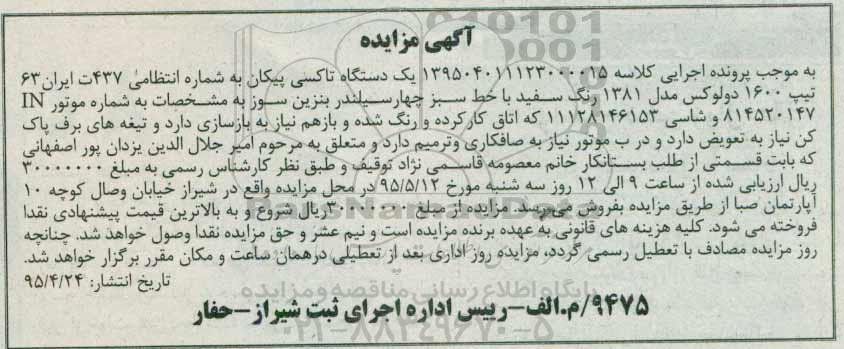 آگهی مزایده
به موجب پرونده اجرایی کلاسه ۱۳۹۵۰۴۰۱۱۱۲۳۰۰۰۰۱۵ یک دستگاه تاکسی پیکان به شماره انتظامی ۴۳۷ت ایران ۶۳
تیپ ۱۶۰۰ دولوکس مدل ۱۳۸۱ رنگ سفید با خط سبز چهارسیلندر بنزین سوز به مشخصات به شماره موتور IN
۸۱۴۵۲۰۱۴۷ و شاسی ۱۱۱۲۸۱۴۶۱۵۳ که اتاق کارکرده و رنگ شده و بازهم نیاز به بازسازی دارد و تیغه های برف پاک
کن نیاز به تعویض دارد و در ب موتور نیاز به صافکاری وترمیم دارد و متعلق به مرحوم امیر جلال الدین یزدان پور اصفهانی
که بابت قسمتی از طلب بستانکار خانم معصومه قاسمی نژاد توقیف و طبق نظر کارشناس رسمی به مبلغ ۳۰۰۰۰۰۰۰
ریال ارزیابی شده از ساعت ۹ الی ۱۲ روز سه شنبه مورخ ۹۵/۵/۱۲ در محل مزایده واقع در شیراز خیابان وصال کوچه ۱۰
آپارتمان صبا از طریق مزایده بفروش می‌رسد. مزایده از مبلغ ۳۰۰۰۰۰۰۰ریال شروع و به بالاترین قیمت پیشنهادی نقدا
فروخته می شود. کلیه هزینه های قانونی به عهده برنده مزایده است و نیم عشر و حق مزایده نقدا وصول خواهد شد. چنانچه
روز مزایده مصادف با تعطیل رسمی گردد، مزایده روز اداری بعد از تعطیلی درهمان ساعت و مکان مقرر برگزار خواهد شد.
تاریخ انتشار: ۹۵/۴/۲۴
۹۴۷۵/م.الف-رییس اداره اجرای ثبت شیراز-حفار
پایگاه اطلاع رسانی مناقصه و مزایده
۰۲۱-۸۸۳۴۹۶۷۰-۵